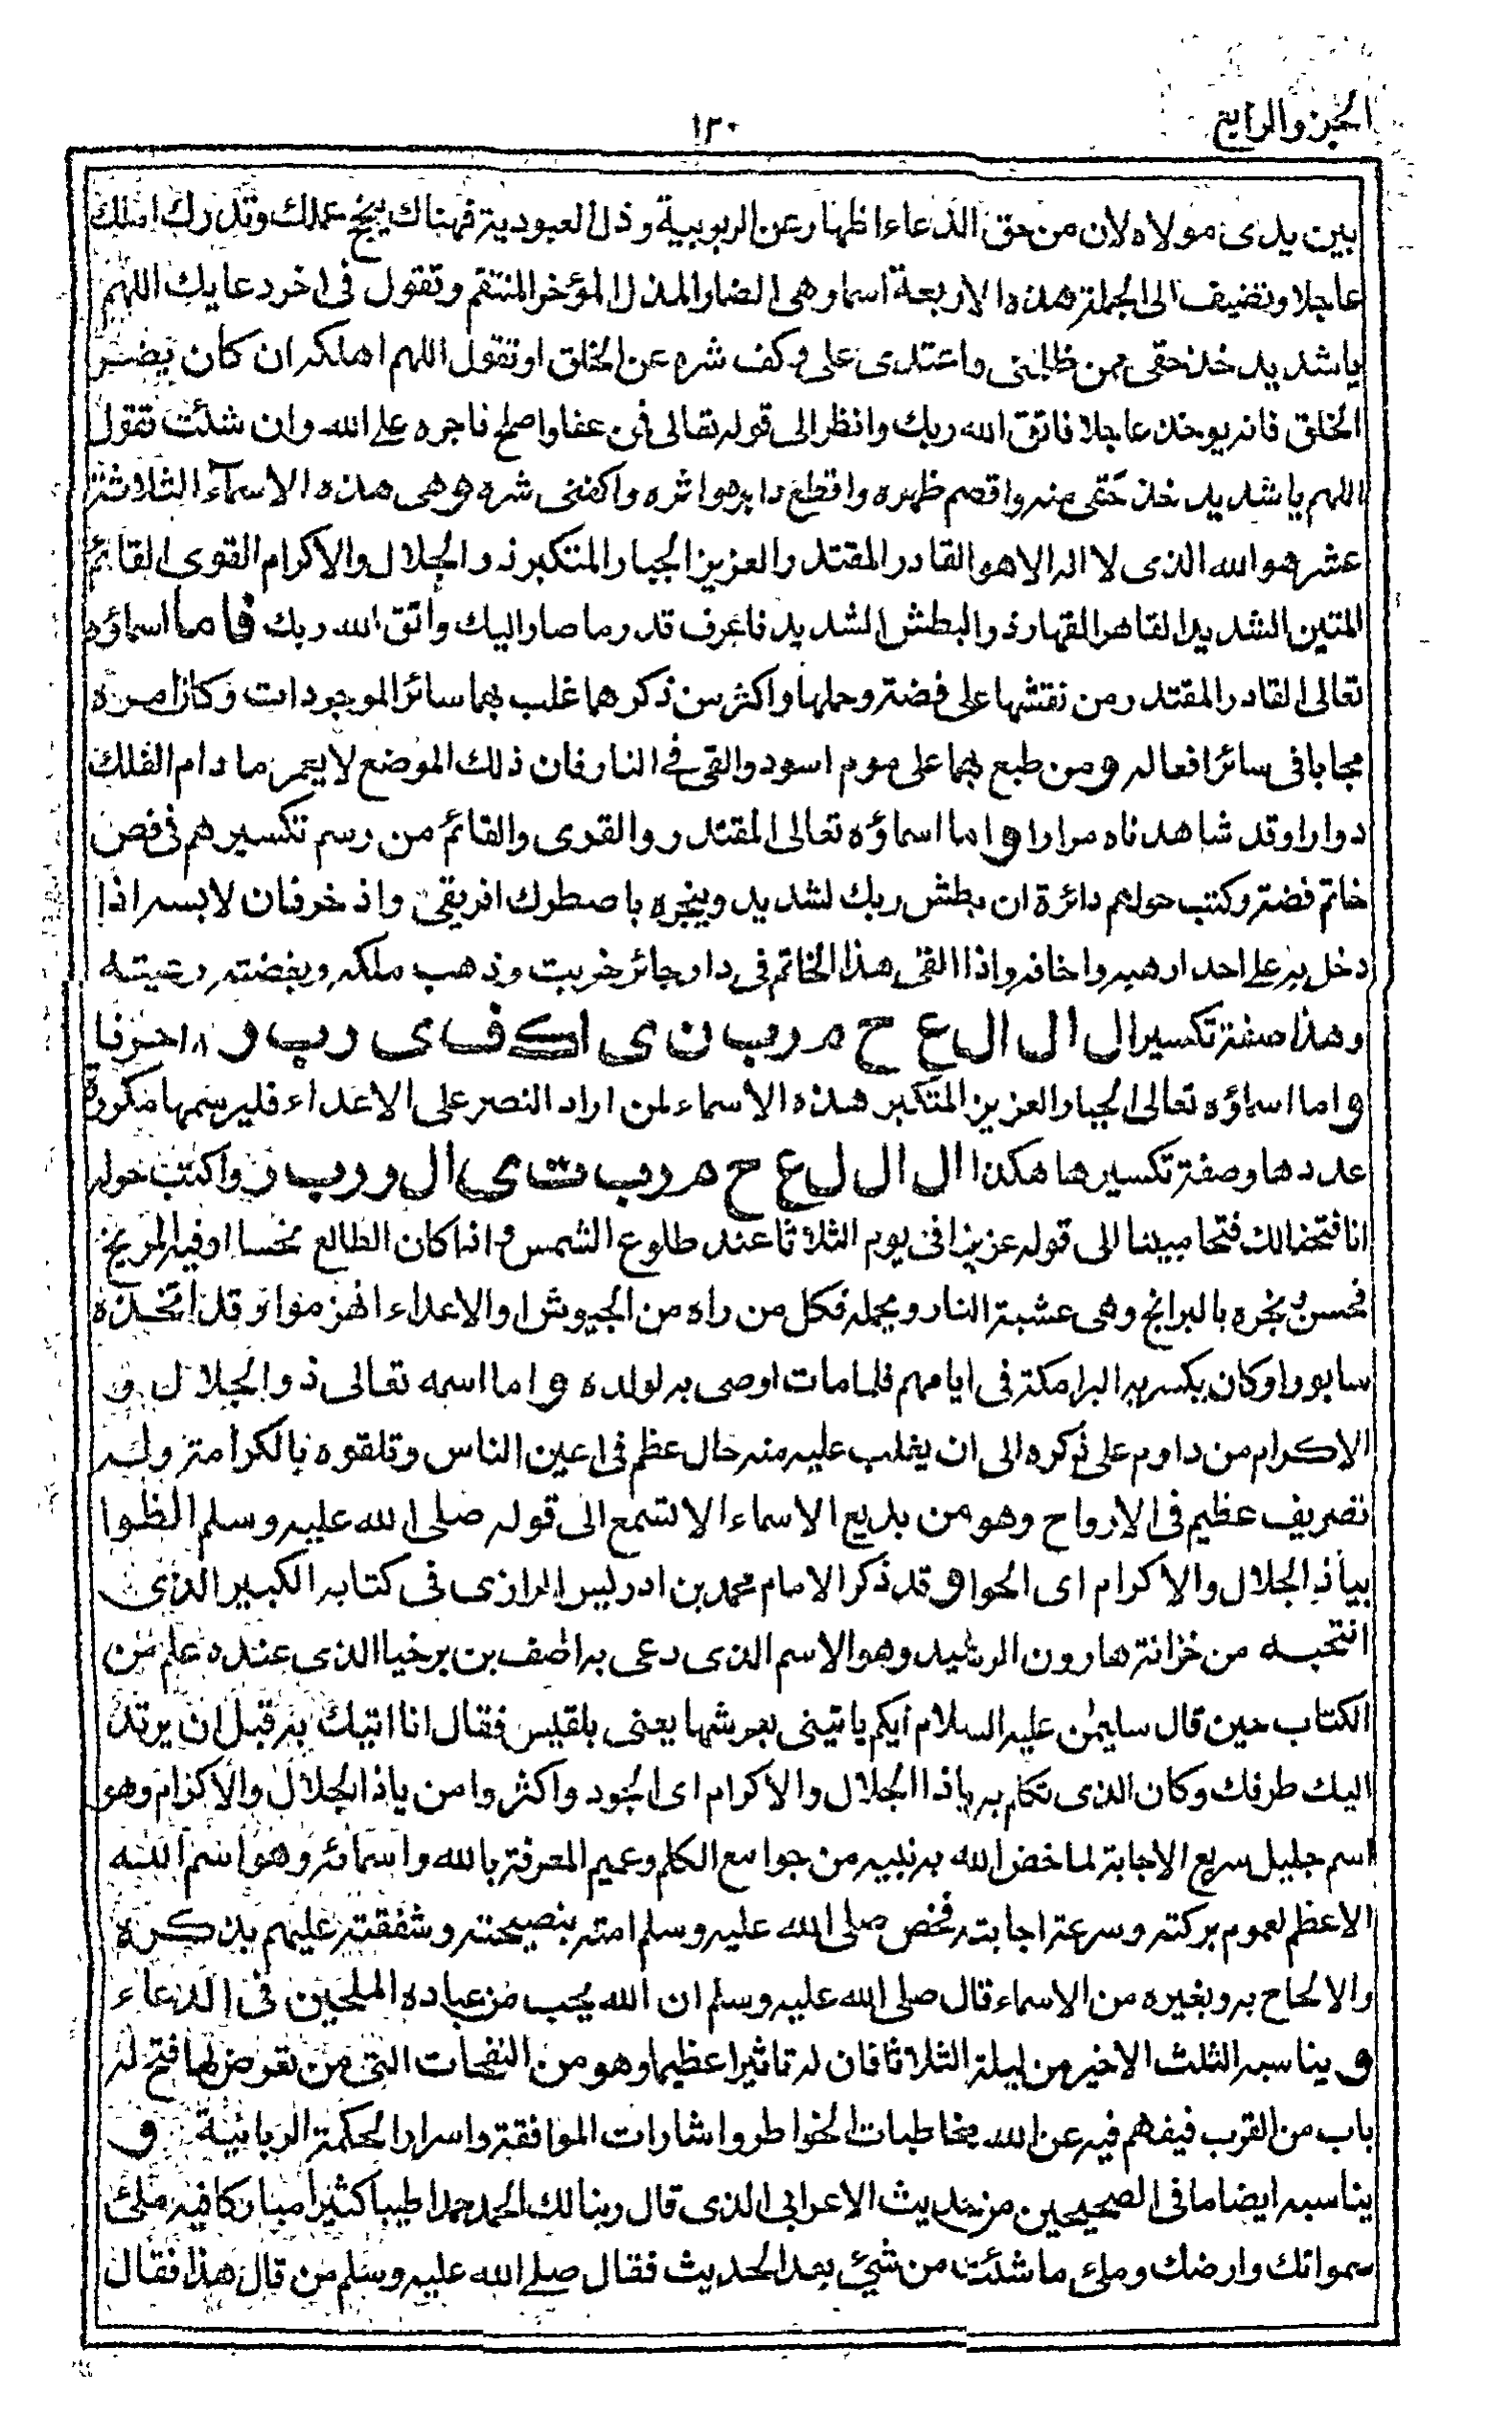 الجزء الرابع
١٣٠
بين يدى مولاه لان من حق الدعاء اظهار عن الربوبية وذل العبودية فهناك ينجح عملك وتدرك املك
عاجلا وتضيف الى الجملة هذه الاربعة اسما وهى الضار المذل المؤخر المنتقم وتقول فى اخر دعايك اللهم
يا شديد خذ حقى ممن ظلمنى واعتدى على وكف شره عن الخلق او تقول اللهم اهلكه ان كان يضر
الخلق فانه يوخذ عاجلا فاتق الله ربك وانظر الى قوله تعالى فمن عفا واصلح فاجره على الله وان شئت تقول
اللهم يا شديد خذ حقى منه واقصم ظهره واقطع دابره واثره واكفنى شره وهى هذه الاسماء الثلاثة
عشر هو الله الذى لا اله الا هو القادر المقتدر العزيز الجبار المتكبر ذو الجلال والاكرام القوى القائم
المتين الشديد القاهر القهار ذو البطش الشديد فاعرف قدر ما صار اليك واتق الله ربك فاما اسماؤه
تعالى القادر المقتدر من نقشها على فضة وحملها واكثر من ذكرهما غلب بهما سائر الموجودات وكان امره
مجابا فى سائر افعاله ومن طبع بهما على موم اسود والقى فى النار فان ذلك الموضع لا يعمر ما دام الفلك
دوارا وقد شاهدناه مرارا واما اسماؤه تعالى المقتدر والقوى والقائم من رسم تكسيرهم فى فص
خاتم فضة وكتب حولهم دائرة ان بطش ربك لشديد وبخره باصطرك افريقى واذخر فان لابسه اذا
دخل به على احد ارهبه واخافه واذا القى هذا الخاتم فى دار جائر خربت وذهب ملكه وبغضته رعيته
وهذا صفة تكسير ال ال ال ع ح م ر ب ن ى ا ك ف ى ر ب ر ١٨ حرفا
واما اسماؤه تعالى الجبار العزيز المتكبر هذه الاسماء لمن اراد النصر على الاعداء فليرسمها مكررة
عددها وصفة تكسيرها هكذا ال ال ل ع ح م ر ب ت ى ال و ر ب ز واكتب حوله
انا فتحنا لك فتحا مبينا الى قوله عزيزا فى يوم الثلاثا عند طلوع الشمس واذا كان الطالع نحسا او فيه المريخ
فحسن وبخره بالبرانج وهى عشبة النار ويحمله فكل من راه من الجيوش والاعداء انهزموا وقد اتخذه
سابور او كان يكسر به البرامكة فى ايامهم فلما مات اوصى به لولده واما اسمه تعالى ذو الجلال و
الاكرام من داوم على ذكره الى ان يغلب عليه منه حال عظم فى اعين الناس وتلقوه بالكرامة وله
تصريف عظيم فى الارواح وهو من بديع الاسماء الا تسمع الى قوله صلى الله عليه وسلم الظوا
بياذ الجلال والاكرام اى الحوا وقد ذكر الامام محمد بن ادريس الرازى فى كتابه الكبير الذى
انتخبه من خزانة هارون الرشيد وهو الاسم الذى دعى به اصف بن برخيا الذى عنده علم من
الكتاب حين قال سليمن عليه السلام ايكم ياتينى بعرشها يعنى بلقيس فقال انا اتيك به قبل ان يرتد
اليك طرفك وكان الذى تكلم به ياذا الجلال والاكرام اى الجود واكثروا من ياذ الجلال والاكرام وهو
اسم جليل سريع الاجابة لما خض الله به نبيه من جوامع الكلم وعميم المعرفة بالله واسمائه وهو اسم الله
الاعظم لعموم بركته وسرعة اجابته فخص صلى الله عليه وسلم امته بنصيحته وشفقته عليهم بذكره
والالحاح به وبغيره من الاسماء قال صلى الله عليه وسلم ان الله يحب من عباده الملحين فى الدعاء
ويناسبه الثلث الاخير من ليلة الثلاثا فان له تاثيرا عظيما وهو من النفحات التى من تعرض لها فتح له
باب من القرب فيفهم فيه عن الله مخاطبات الخواطر واشارات الموافقة واسرار الحكمة الربانية و
يناسبه ايضا ما فى الصحيحين من حديث الاعرابى الذى قال ربنا لك الحمد حمدا طيبا كثيرا مباركا فيه ملئ
سمواتك وارضك وملئ ما شئت من شئ بعد الحديث فقال صلى الله عليه وسلم من قال هذا فقال